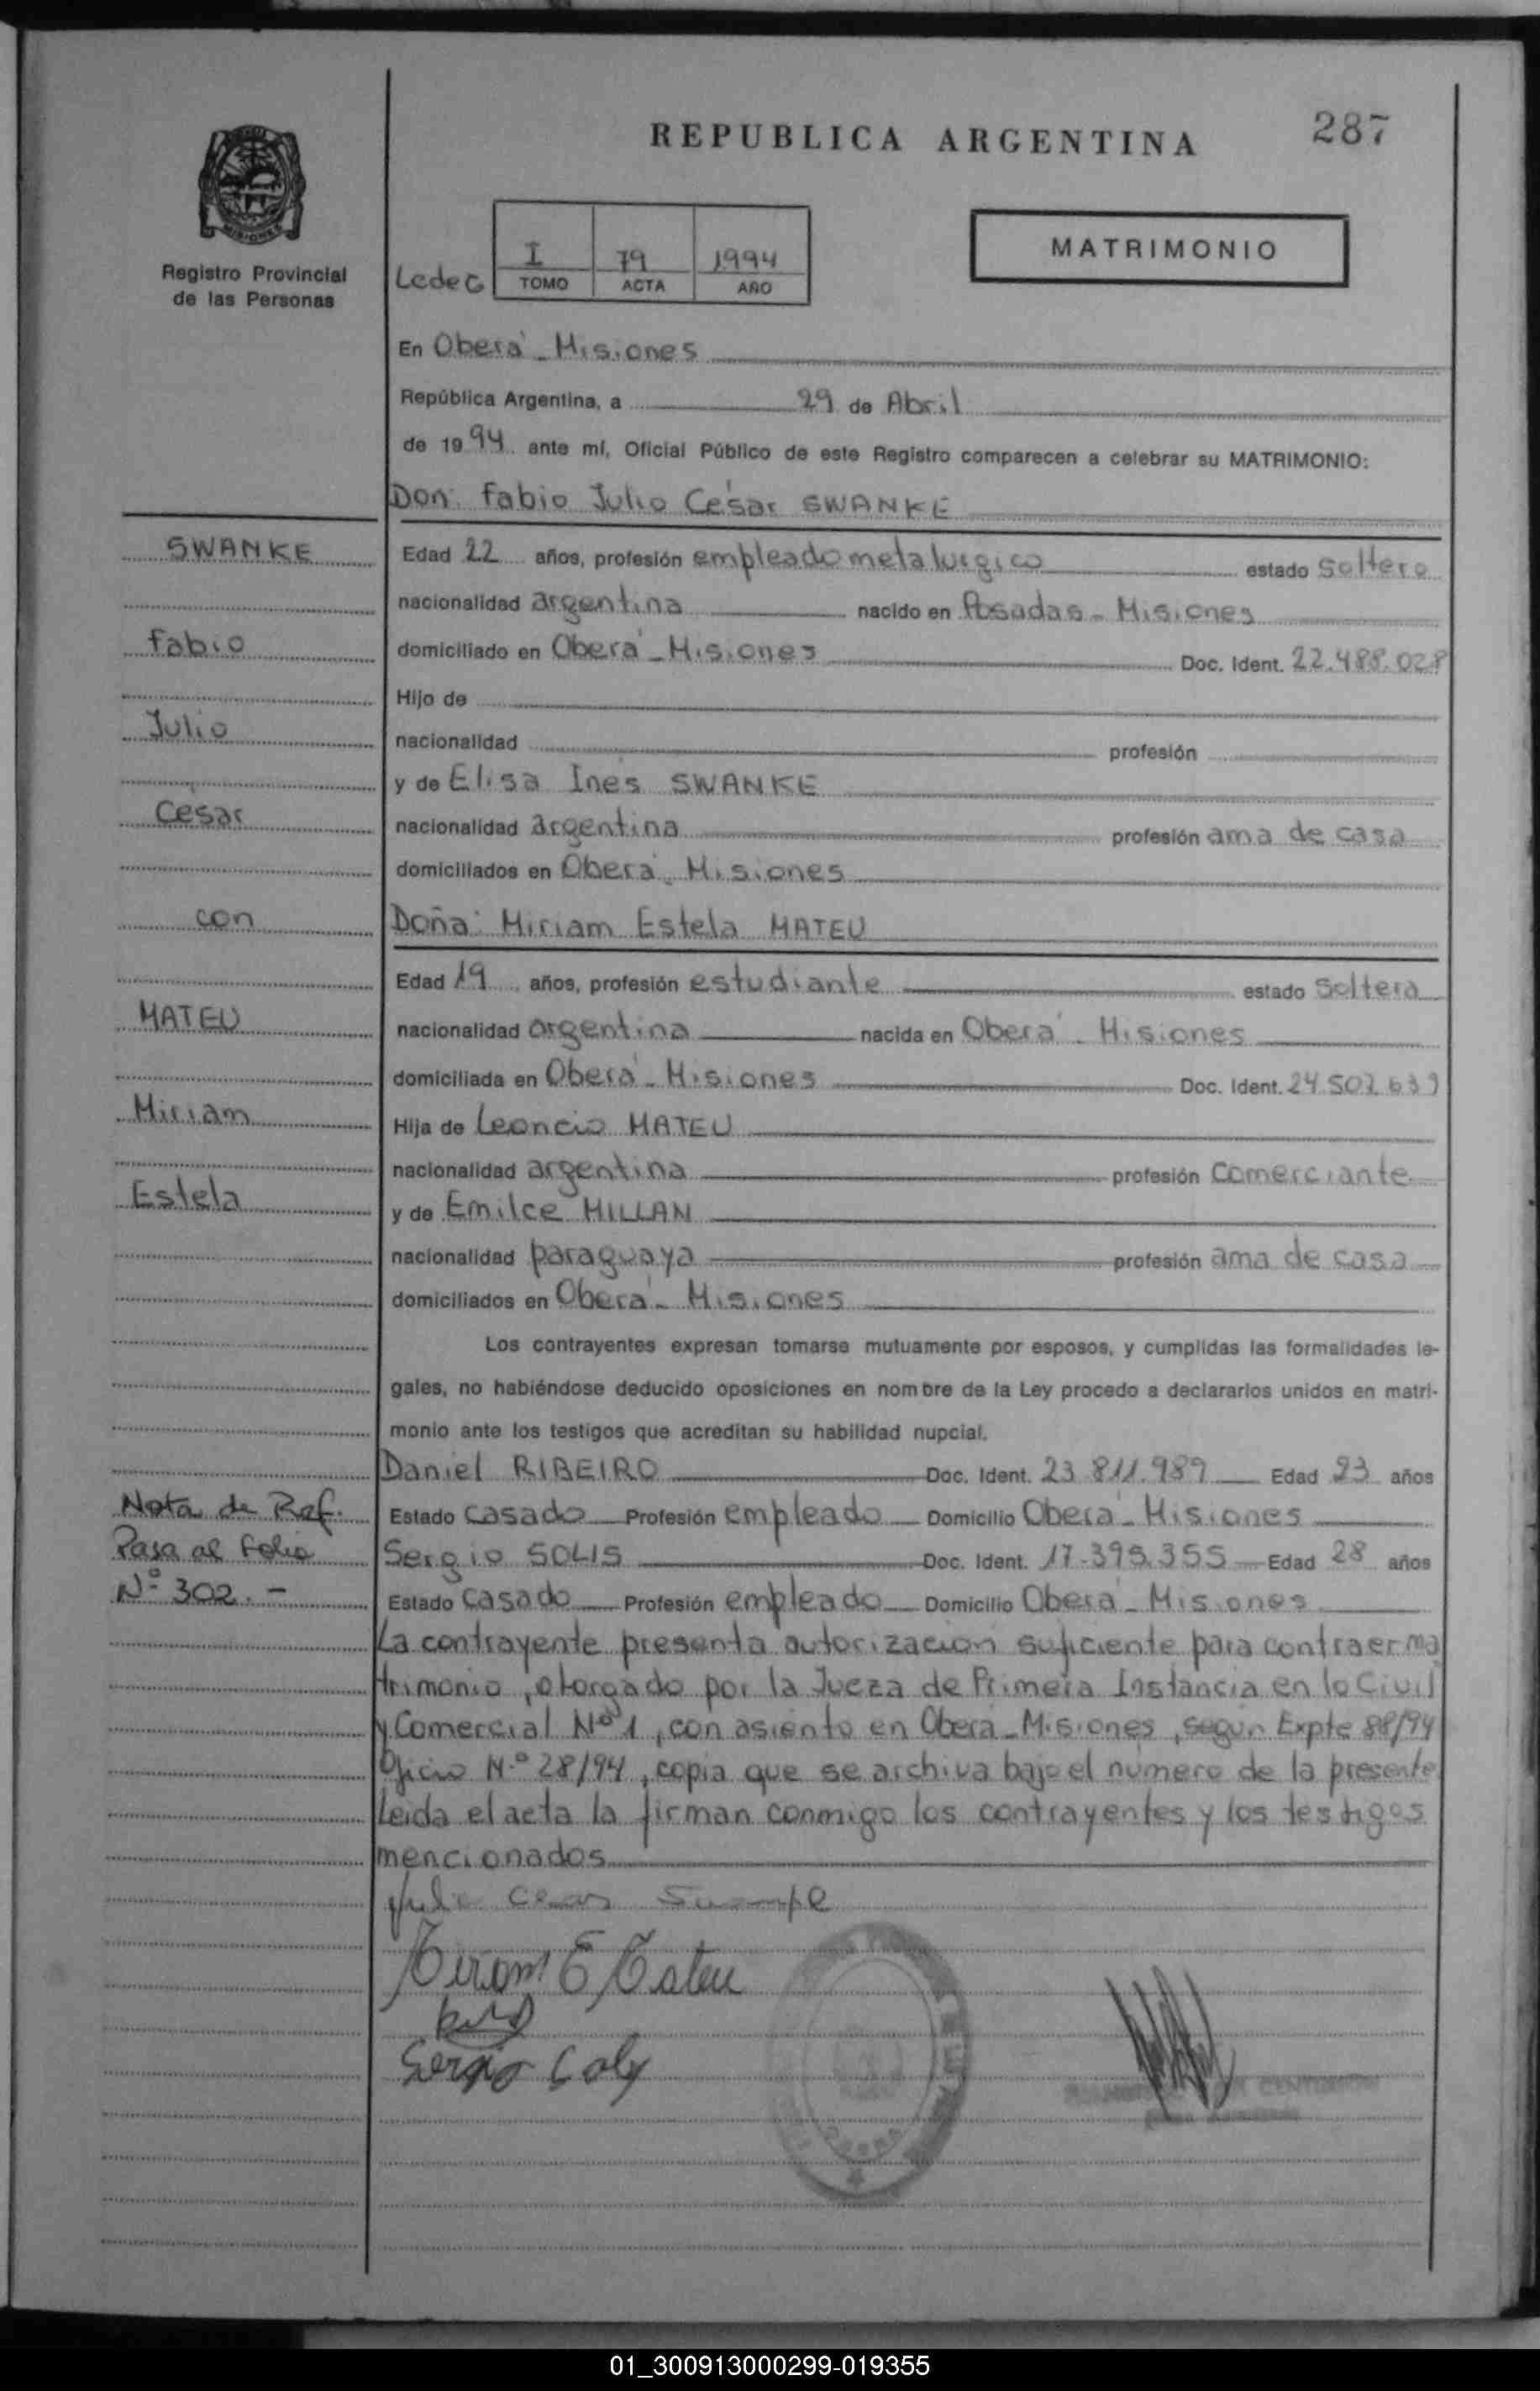 REPUBLICA ARGENTINA
287
MISIONES
Registro Provincial
de las Personas
I
79
1994
TOMO
ACTA
AÑO
MATRIMONIO
En Oberá - Misiones
República Argentina, a 29 de Abril
de 1994 ante mí, Oficial Público de este Registro comparecen a celebrar su MATRIMONIO:
Don: Fabio Julio César SWANKE
SWANKE
Fabio
Julio
César
con
MATEU
Miriam
Estela
Nota de Ref.
Pasa al Folio
Nº 302.-
Edad 22 años, profesión empleado metalurgico estado soltero
nacionalidad argentina nacido en Posadas - Misiones
domiciliado en Oberá - Misiones Doc. Ident. 22.488.028
Hijo de
nacionalidad profesión
y de Elisa Inés SWANKE
nacionalidad argentina profesión ama de casa
domiciliados en Oberá - Misiones
Doña: Miriam Estela MATEU
Edad 19 años, profesión estudiante estado soltera
nacionalidad argentina nacida en Oberá - Misiones
domiciliada en Oberá - Misiones Doc. Ident. 24.502.639
Hija de Leoncio MATEU
nacionalidad argentina profesión comerciante
y de Emilce MILLAN
nacionalidad paraguaya profesión ama de casa
domiciliados en Oberá - Misiones
Los contrayentes expresan tomarse mutuamente por esposos, y cumplidas las formalidades le-
gales, no habiéndose deducido oposiciones en nombre de la Ley procedo a declararlos unidos en matri-
monio ante los testigos que acreditan su habilidad nupcial.
Daniel RIBEIRO Doc. Ident. 23.811.989 Edad 23 años
Estado casado Profesión empleado Domicilio Oberá - Misiones
Sergio SOLIS Doc. Ident. 17.395.355 Edad 28 años
Estado casado Profesión empleado Domicilio Oberá - Misiones
La contrayente presenta autorización suficiente para contraer ma
trimonio, otorgado por la Jueza de Primera Instancia en lo Civil
y Comercial Nº 1, con asiento en Oberá - Misiones, según Expte 88/94
Oficio N.º 28/94, copia que se archiva bajo el número de la presente.
Leída el acta la firman conmigo los contrayentes y los testigos
mencionados
Miriam E Mateu
01_300913000299-019355